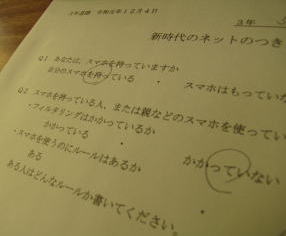 3年道徳 令和元年12月4日
3年
新時代のネットのつき
Q1 あなたは、スマホを持っていますか
自分のスマホを持っている ・ スマホはもっていな
Q2 スマホを持っている人、または親などのスマホを使ってい
・フィルタリングはかかっているか
かかっている ・ かかっていない
・スマホを使うのにルールはあるか
ある ・
ある人はどんなルールか書いてください。